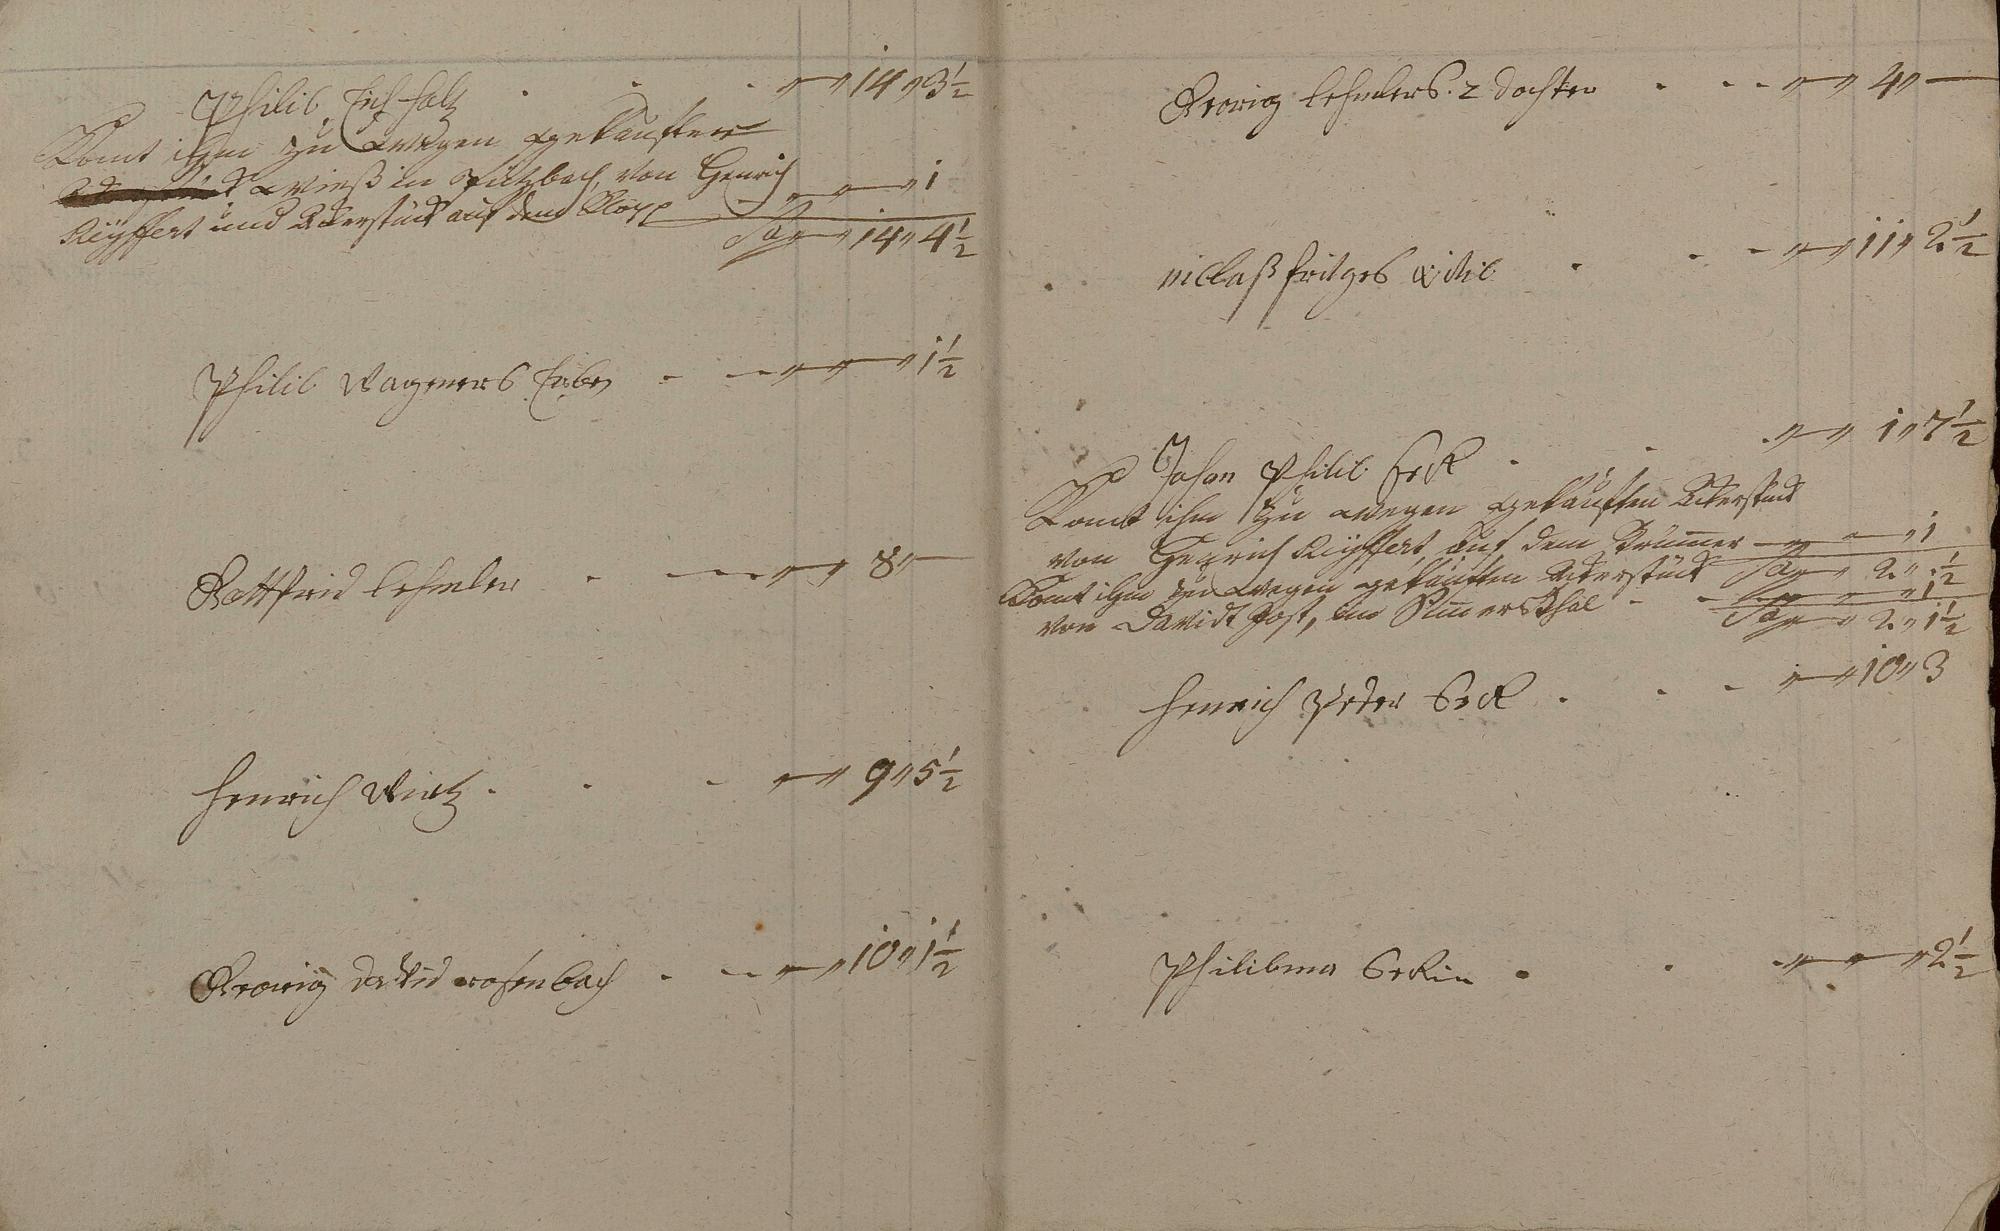 Philib Eich-holtz . . . „—„ 14 „ 3½
Komt ihm zu wegen gekauften
Wieß in von Henrich „—„—„ 1
Kÿffert und Ackerstück auf dem
Sa „—„ 14 „ 4½
Philib Wagners Erben . — „—„—„ 1½
Gottfrid lehmler . — „—„ 8 „—
Henrich Wirtz . . . „—„ 9 „ 5½
Georig David rosenbach . — „—„ 10 „ 1½
Georig lehmlers 2 Dochter . - - „—„ 4 „—
niclaß fritges Witib . . - „—„ 11 „ 2½
Johan Philib Seck . . „—„ 1 „ 7½
Komt ihm zu wegen gekauften Ackerstück
von Henrich Kÿffert, auf dem —„—„ 1
Sa „—„ 2 „ ½
Komt ihm zu wegen gekauften Ackerstück
von Davidt Jost, im - —„—„ 1
Sa „—„ 2 „ 1½
Henrich Peder Seck . . - „—„ 10 „ 3
Philibina Seckin . . „—„—„ 2½